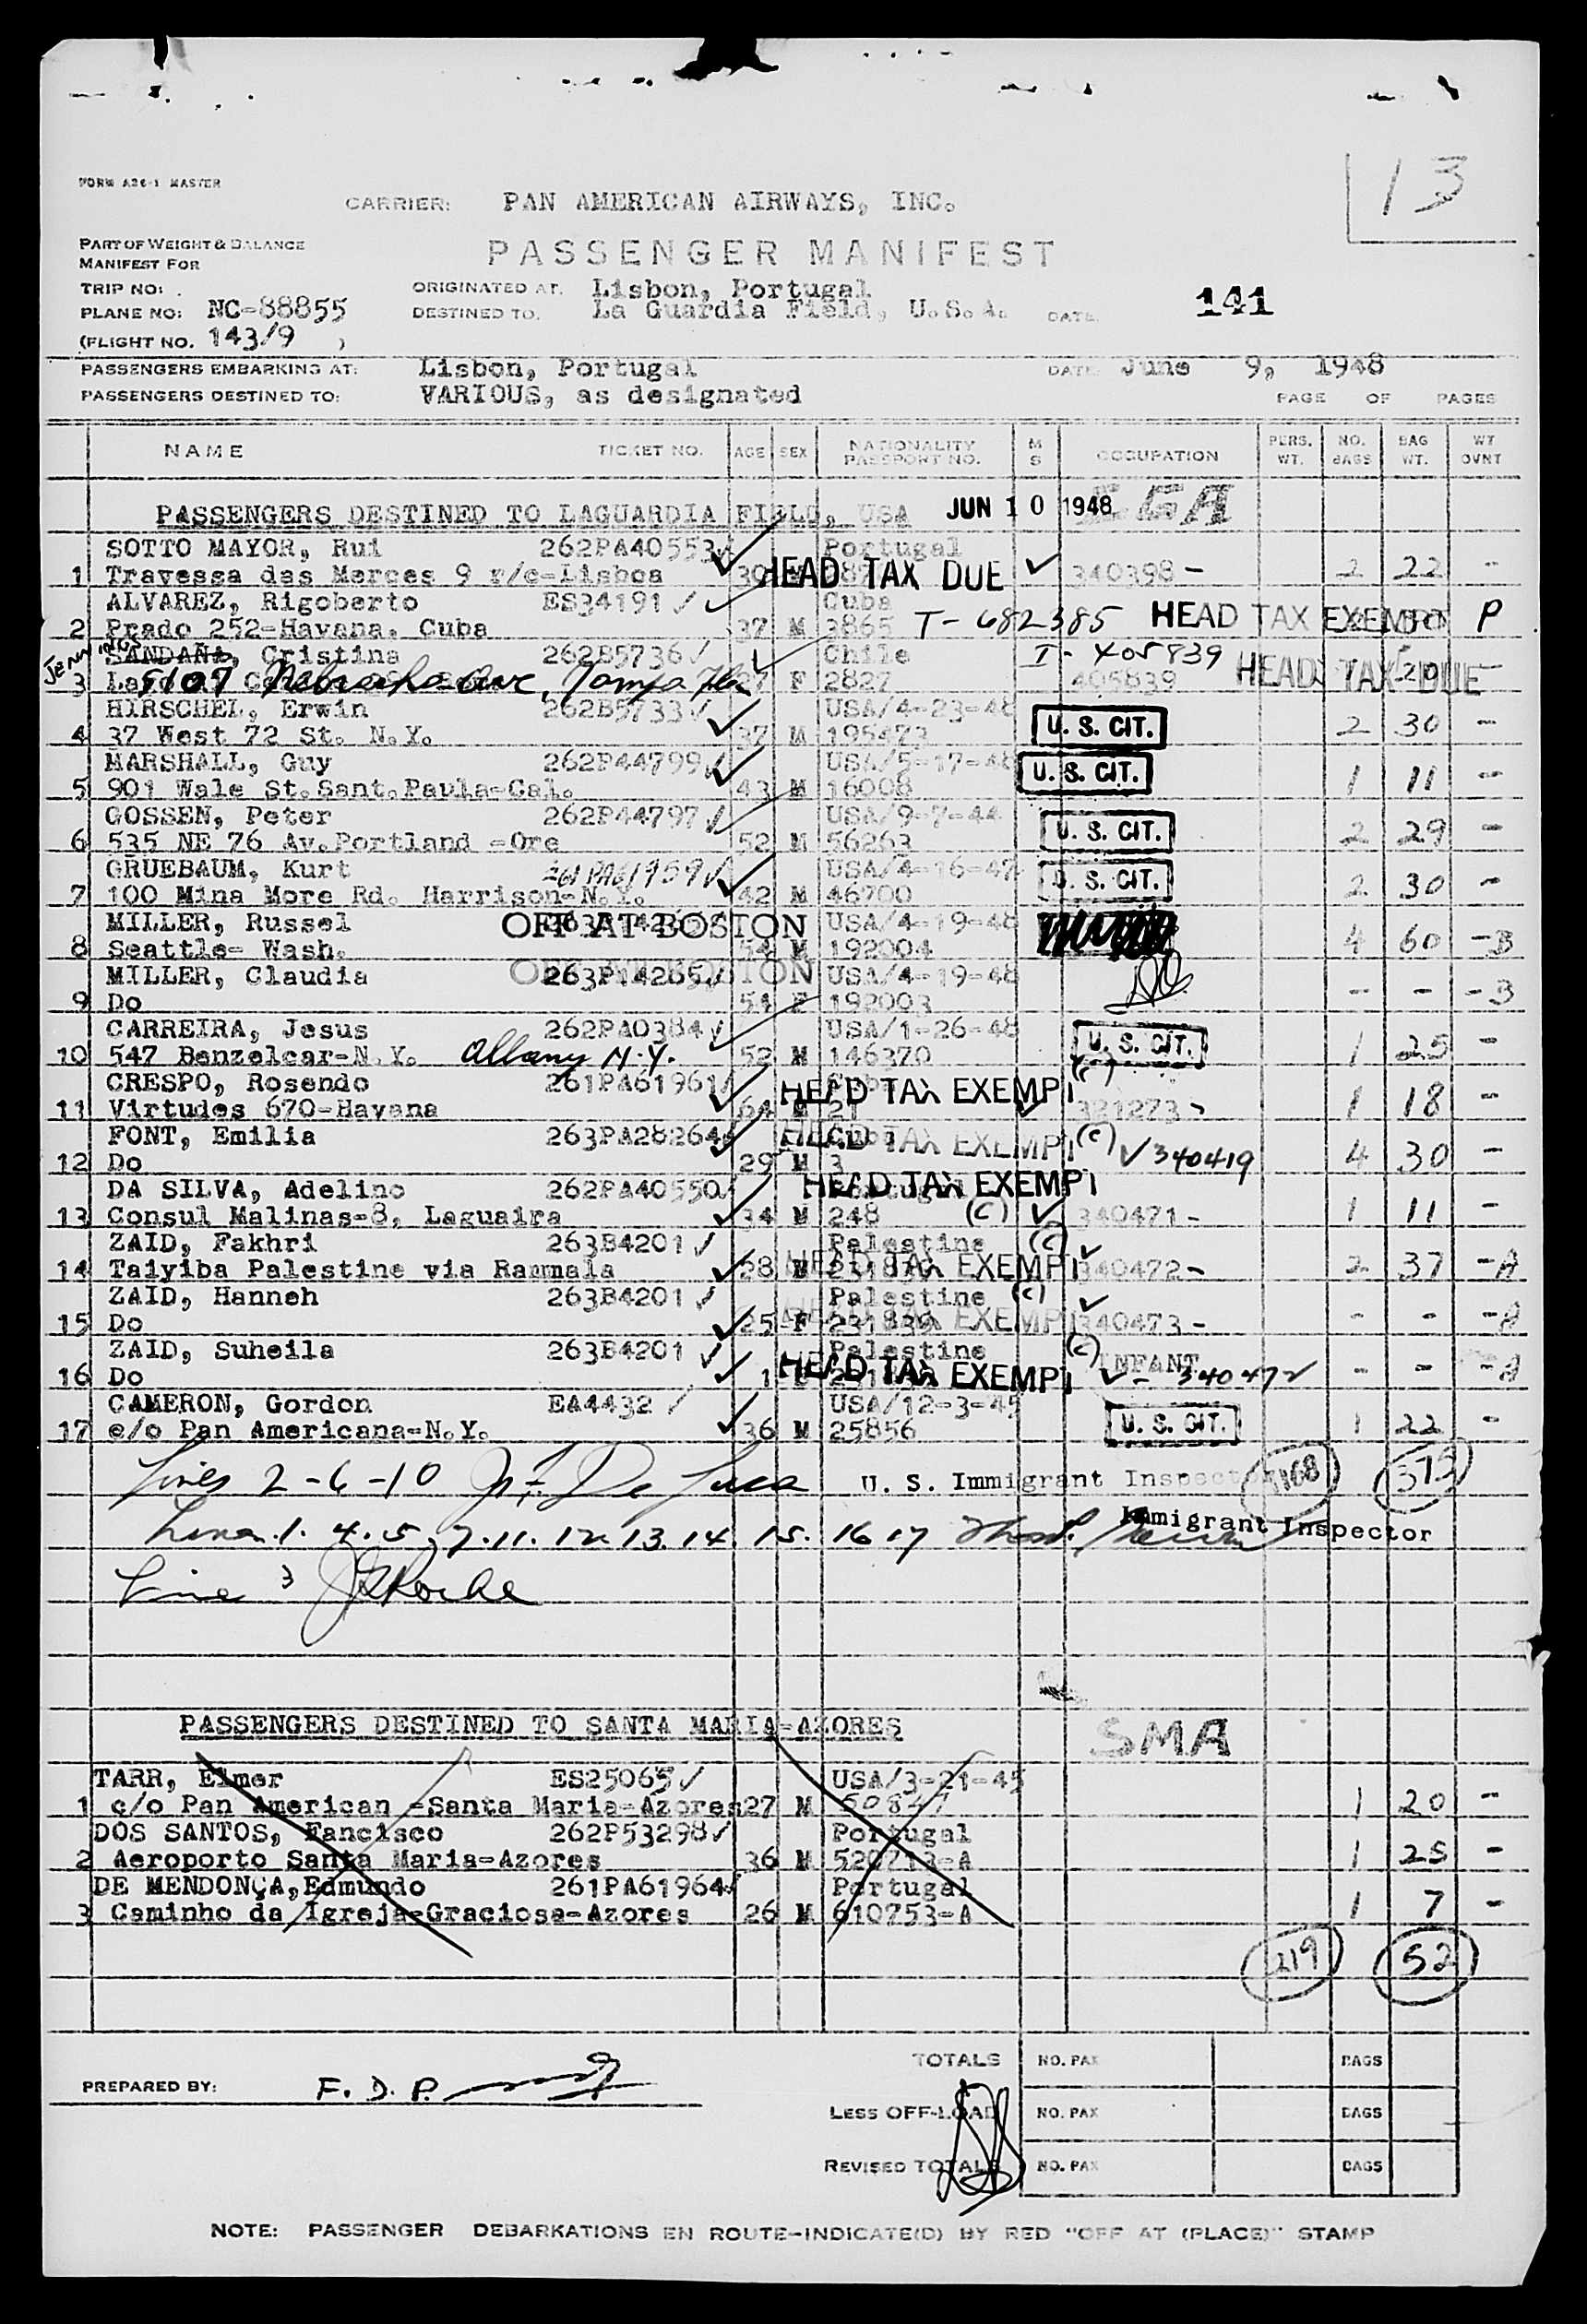 13
FORM A26-1 MASTER
CARRIER: PAN AMERICAN AIRWAYS, INC.
PART OF WEIGHT & BALANCE
MANIFEST FOR
PASSENGER MANIFEST
TRIP NO: ORIGINATED AT. Lisbon, Portugal
PLANE NO: NC-88855 DESTINED TO. La Guardia Field, U.S.A. DATE. 141
(FLIGHT NO. 143/9 )
PASSENGERS EMBARKING AT: Lisbon, Portugal DATE June 9, 1948
PASSENGERS DESTINED TO: VARIOUS, as designated PAGE OF PAGES
NAME TICKET NO. AGE SEX NATIONALITY PASSPORT NO. M S OCCUPATION PERS. WT. NO. BAGS BAG WT. WT OVNT
PASSENGERS DESTINED TO LAGUARDIA FIELD, USA JUN 10 1948 LGA
SOTTO MAYOR, Rui 262PA40553 Portugal
1 Travessa das Merces 9 r/c-Lisboa HEAD TAX DUE 340398- 2 22 -
ALVAREZ, Rigoberto ES34191 Cuba
2 Prado 252-Havana. Cuba 37 M 3865 T-682385 HEAD TAX EXEMPT P
SANDAÑA, Cristina 262B5736 Chile I-405839
3 5107 Nebraska Ave, Tampa Fla 27 F 2827 405839 HEAD TAX DUE 20
HIRSCHEL, Erwin 262B5733 USA/4-23-48
4 37 West 72 St. N.Y. 37 M 195473 U. S. CIT. 2 30 -
MARSHALL, Guy 262P44799 USA/5-17-48
5 901 Wale St.Sant.Paula-Cal. 43 M 16008 U. S. CIT. 1 11 -
GOSSEN, Peter 262P44797 USA/9-7-44
6 535 NE 76 Av.Portland -Ore 52 M 56263 U. S. CIT. 2 29 -
GRUEBAUM, Kurt 261PA61959 USA/4-16-47
7 100 Mina More Rd. Harrison-N.Y. 42 M 46700 U. S. CIT. 2 30 -
MILLER, Russel OFF AT BOSTON USA/4-19-48
8 Seattle- Wash. 54 M 192004 4 60 -B
MILLER, Claudia 263P14265 OFF AT BOSTON USA/4-19-48
9 Do 51 F 192003 - - -B
CARREIRA, Jesus 262PA0384 USA/1-26-48
10 547 Benzelcar-N.Y. Albany N.Y. 52 M 146370 U. S. CIT. 1 25 -
CRESPO, Rosendo 261PA61961 HEAD TAX EXEMPT (c)
11 Virtudes 670-Havana 64 M 21 321273- 1 18 -
FONT, Emilia 263PA28264 Cuba HEAD TAX EXEMPT (c)
12 Do 29 M 3 340419 4 30 -
DA SILVA, Adelino 262PA40550 Portugal HEAD TAX EXEMPT
13 Consul Malinas-8, Laguaira 34 M 248 (c) 340471- 1 11 -
ZAID, Fakhri 263B4201 Palestine (c)
14 Taiyiba Palestine via Rammala 28 M HEAD TAX EXEMPT 340472- 2 37 -A
ZAID, Hanneh 263B4201 Palestine (c)
15 Do 25 F 231839 HEAD TAX EXEMPT 340473- - - -A
ZAID, Suheila 263B4201 Palestine (c) INFANT
16 Do 1 HEAD TAX EXEMPT - 340472 - - -A
CAMERON, Gordon EA4432 USA/12-3-45
17 c/o Pan Americana-N.Y. 36 M 25856 U. S. CIT. 1 22 -
Lines 2-6-10 De Luca U. S. Immigrant Inspector 373
Lines 1. 4. 5. 7. 11. 12. 13. 14. 15. 16 17 Immigrant Inspector
Line 3 Roche
PASSENGERS DESTINED TO SANTA MARIA-AZORES SMA
TARR, Elmer ES25065 USA/3-21-45
1 c/o Pan American -Santa Maria-Azores 27 M 1 20 -
DOS SANTOS, Fancisco 262P53298 Portugal
2 Aeroporto Santa Maria-Azores 36 M 1 25 -
DE MENDONÇA,Edmundo 261PA61964 Portugal
3 Caminho da Igreja-Graciosa-Azores 26 M 610753-A 1 7 -
219 52
TOTALS NO. PAX BAGS
PREPARED BY: F. D. P.
LESS OFF-LOAD NO. PAX BAGS
REVISED TOTALS NO. PAX BAGS
NOTE: PASSENGER DEBARKATIONS EN ROUTE-INDICATE(D) BY RED "OFF AT (PLACE)" STAMP